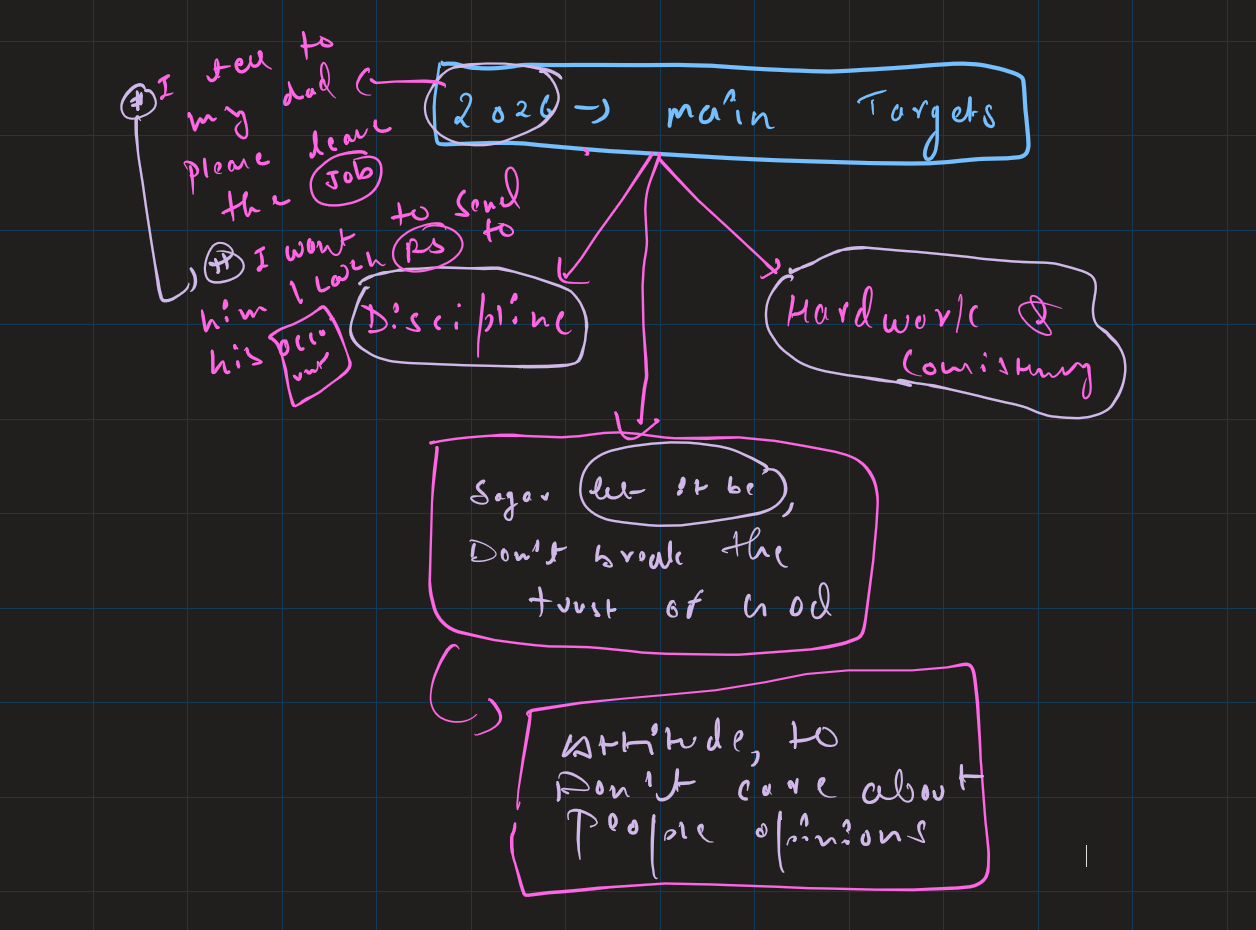 2026 → main Targets
* I tell to
my dad
please leave
the Job
** I want to send
1 Lakh RS to
him
his account
Discipline
Hardwork &
Consistency
Sagar let it be,
Don't break the
trust of God
Attitude, to
Don't care about
People opinions